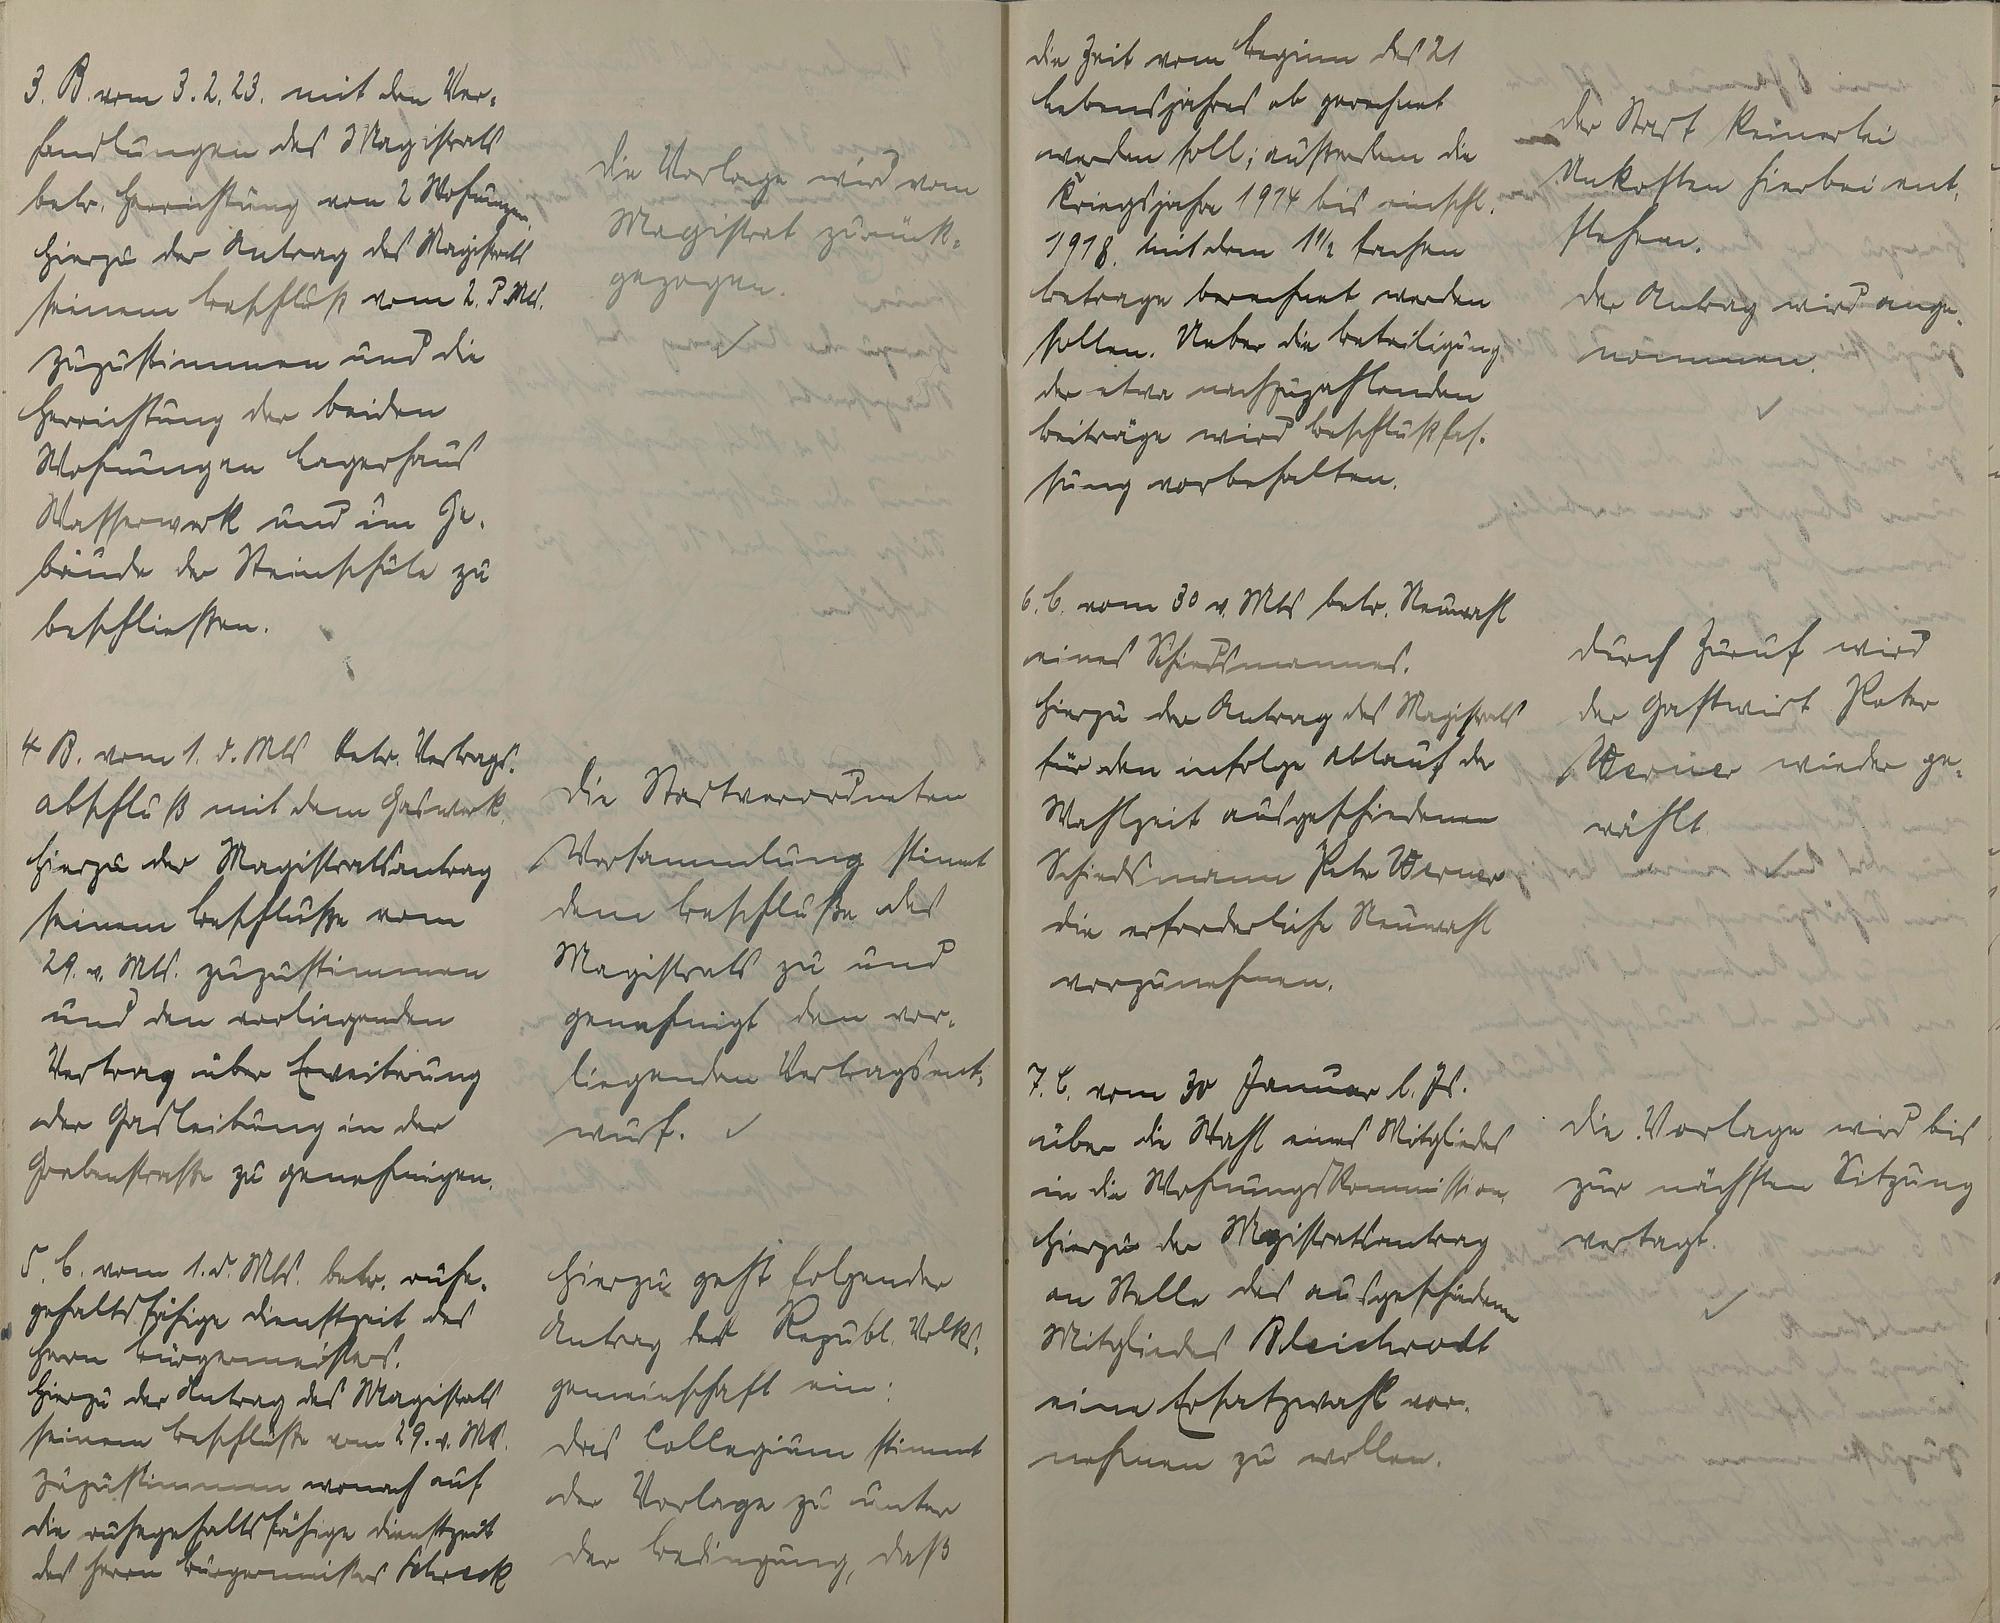 3. B. vom 3.2.23. mit den Ver-
handlungen des Magistrats
betr. Herrichtung von 2 Wohnungen.
Hierzu der Antrag des Magistrats
seinem Beschluß vom 2. d. Mts.
zuzustimmen und die
Herrichtung der beiden
Wohnungen Lagerhaus
Wasserwerk und im Ge-
bäude der Steinschule zu
beschließen.
Die Vorlage wird vom
Magistrat zurück-
gezogen.
4 B. vom 1. d. Mts betr. Vertrags-
abschluß mit dem Gaswerk.
Hierzu der Magistratsantrag
seinem Beschluße vom
29. v. Mts. zuzustimmen
und den vorliegenden
Vertrag über Erweiterung
der Gasleitung in der
Grabenstraße zu genehmigen.
Die Stadtverordneten
Versammlung stimmt
dem Beschluße des
Magistrats zu und
genehmigt den vor-
liegenden Vertragsent-
wurf.
5. B. vom 1. d. Mts. betr. ruhe-
gehaltsfähige Dienstzeit des
Herrn Bürgermeisters.
Hierzu der Antrag des Magistrats
seinem Beschluße vom 29. v. Mts.
zuzustimmen wonach auf
die ruhegehaltsfähige Dienstzeit
des Herrn Bürgermeisters Schreck
Hierzu geht folgender
Antrag der Republ. Volks-
gemeinschaft ein:
Das Collegium stimmt
der Vorlage zu unter
der Bedingung, daß
die Zeit vom Beginn des 21
Lebensjahres ab gerechnet
werden soll; außerdem die
Kriegsjahre 1914 bis einschl.
1918. mit dem 1 1/2 fachen
Betrage berechnet werden
sollen. Ueber die Beteiligung
der etwa nachzuzahlenden
Beiträge wird Beschlußfas-
sung vorbehalten.
der Stadt keinerlei
Unkosten hierbei ent-
stehen.
Der Antrag wird ange-
nommen.
6. B. vom 30 v. Mts betr. Neuwahl
eines Schiedsmannes.
Hierzu der Antrag des Magistrats
für den infolge Ablauf der
Wahlzeit ausgeschiedenen
Schiedsmann Peter Werner
die erforderliche Neuwahl
vorzunehmen.
Durch Zuruf wird
der Gastwirt Peter
Werner wieder ge-
wählt
7. B. vom 30 Januar l. Js.
über die Wahl eines Mitgliedes
in die Wohnungskommission.
Hierzu der Magistratsantrag
an Stelle des ausgeschiedenen
Mitgliedes Bleichrodt
eine Ersatzwahl vor-
nehmen zu wollen.
Die Vorlage wird bis
zur nächsten Sitzung
vertagt.